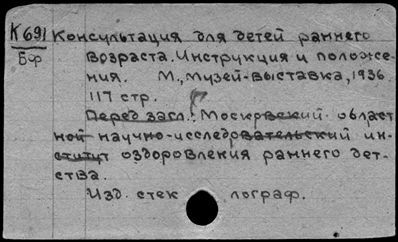 К691 Консультация для детей раннего
Бф возраста. Инструкция и положе-
ния. М., Музей-выставка, 1936.
117 стр.
Перед загл.: Московский област
ной научно-исследовательский ин-
ститут оздоровления раннего дет-
ства.
Изд. стек лограф.